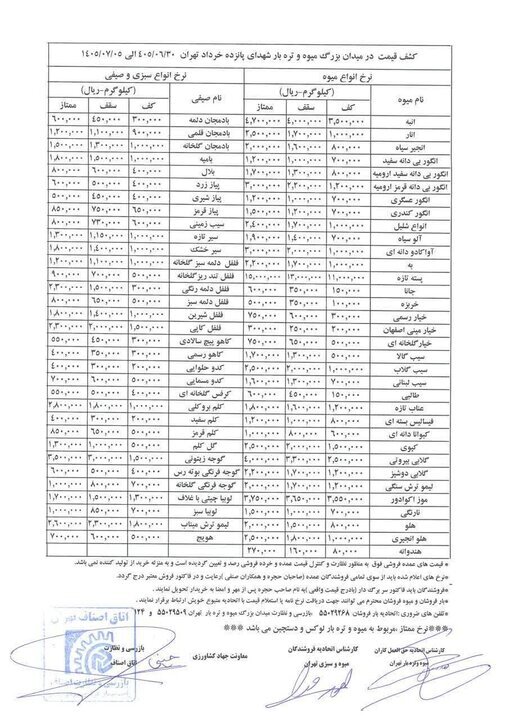 کشف قیمت در میدان بزرگ میوه و تره بار شهدای پانزده خرداد تهران ۴۰۵/۰۶/۳۰ الی ۱۴۰۵/۰۷/۰۵
نرخ انواع میوه نرخ انواع سبزی و صیفی
نام میوه (کیلوگرم-ریال) نام صیفی (کیلوگرم-ریال)
کف سقف ممتاز کف سقف ممتاز
انبه ۳,۵۰۰,۰۰۰ ۴,۰۰۰,۰۰۰ ۴,۷۰۰,۰۰۰ بادمجان دلمه ۳۰۰,۰۰۰ ۴۵۰,۰۰۰ ۶۰۰,۰۰۰
انار ۱,۰۰۰,۰۰۰ ۱,۷۰۰,۰۰۰ ۲,۵۰۰,۰۰۰ بادمجان قلمی ۹۰۰,۰۰۰ ۱,۱۰۰,۰۰۰ ۱,۲۰۰,۰۰۰
انجیر سیاه ۸۰۰,۰۰۰ ۱,۶۰۰,۰۰۰ ۲,۰۰۰,۰۰۰ بادمجان گلخانه ۱,۰۰۰,۰۰۰ ۱,۳۰۰,۰۰۰ ۱,۵۰۰,۰۰۰
انگور بی دانه سفید ۷۰۰,۰۰۰ ۱,۰۰۰,۰۰۰ ۱,۲۰۰,۰۰۰ بامیه ۱,۰۰۰,۰۰۰ ۱,۵۰۰,۰۰۰ ۱,۸۰۰,۰۰۰
انگور بی دانه سفید ارومیه ۸۰۰,۰۰۰ ۱,۳۰۰,۰۰۰ ۱,۷۰۰,۰۰۰ بلال ۴۰۰,۰۰۰ ۶۰۰,۰۰۰ ۸۰۰,۰۰۰
انگور بی دانه قرمز ارومیه ۱,۲۰۰,۰۰۰ ۲,۲۰۰,۰۰۰ ۳,۰۰۰,۰۰۰ پیاز زرد ۴۰۰,۰۰۰ ۵۰۰,۰۰۰ ۶۰۰,۰۰۰
انگور عسگری ۷۰۰,۰۰۰ ۱,۰۰۰,۰۰۰ ۱,۲۰۰,۰۰۰ پیاز شیری ۴۰۰,۰۰۰ ۴۵۰,۰۰۰ ۵۰۰,۰۰۰
انگور کندری ۷۰۰,۰۰۰ ۱,۲۰۰,۰۰۰ ۱,۵۰۰,۰۰۰ پیاز قرمز ۶۵۰,۰۰۰ ۷۵۰,۰۰۰ ۸۵۰,۰۰۰
انواع شلیل ۱,۰۰۰,۰۰۰ ۱,۷۰۰,۰۰۰ ۲,۴۰۰,۰۰۰ سیب زمینی ۶۰۰,۰۰۰ ۷۳۰,۰۰۰ ۸۰۰,۰۰۰
آلو سیاه ۷۰۰,۰۰۰ ۱,۴۰۰,۰۰۰ ۱,۹۰۰,۰۰۰ سیر تازه ۱,۰۰۰,۰۰۰ ۱,۱۵۰,۰۰۰ ۱,۳۰۰,۰۰۰
آواکادو دانه ای ۱,۰۰۰,۰۰۰ ۲,۰۰۰,۰۰۰ ۳,۰۰۰,۰۰۰ سیر خشک ۱,۰۰۰,۰۰۰ ۱,۴۰۰,۰۰۰ ۱,۸۰۰,۰۰۰
به ۱,۰۰۰,۰۰۰ ۱,۷۰۰,۰۰۰ ۲,۲۰۰,۰۰۰ فلفل دلمه سبز گلخانه ۷۰۰,۰۰۰ ۱,۰۰۰,۰۰۰ ۱,۲۰۰,۰۰۰
پسته تازه ۱,۰۰۰,۰۰۰ ۱۳,۰۰۰,۰۰۰ ۱۵,۰۰۰,۰۰۰ فلفل تند ریزگلخانه ۵۰۰,۰۰۰ ۷۰۰,۰۰۰ ۹۰۰,۰۰۰
جانا ۱۵۰,۰۰۰ ۳۵۰,۰۰۰ ۶۰۰,۰۰۰ فلفل دلمه رنگی ۱,۳۰۰,۰۰۰ ۱,۵۰۰,۰۰۰ ۲,۳۰۰,۰۰۰
خربزه ۱۵۰,۰۰۰ ۳۵۰,۰۰۰ ۵۰۰,۰۰۰ فلفل دلمه سبز ۵۰۰,۰۰۰ ۶۵۰,۰۰۰ ۸۰۰,۰۰۰
خیار رسمی ۳۰۰,۰۰۰ ۵۰۰,۰۰۰ ۶۵۰,۰۰۰ فلفل شیرین ۱,۰۰۰,۰۰۰ ۱,۴۰۰,۰۰۰ ۱,۸۰۰,۰۰۰
خیار مینی اصفهان ۲۰۰,۰۰۰ ۲۵۰,۰۰۰ ۳۰۰,۰۰۰ فلفل کاپی ۱,۵۰۰,۰۰۰ ۲,۰۰۰,۰۰۰ ۲,۳۰۰,۰۰۰
خیارگلخانه ای ۵۰۰,۰۰۰ ۶۵۰,۰۰۰ ۷۵۰,۰۰۰ کاهو پیچ سالادی ۳۰۰,۰۰۰ ۴۵۰,۰۰۰ ۵۵۰,۰۰۰
سیب گالا ۵۰۰,۰۰۰ ۱,۳۰۰,۰۰۰ ۱,۷۰۰,۰۰۰ کاهو رسمی ۳۰۰,۰۰۰ ۳۵۰,۰۰۰ ۴۰۰,۰۰۰
سیب گلاب ۱,۰۰۰,۰۰۰ ۲,۰۰۰,۰۰۰ ۲,۵۰۰,۰۰۰ کدو حلوایی ۲۰۰,۰۰۰ ۳۰۰,۰۰۰ ۴۰۰,۰۰۰
سیب لبنانی ۷۰۰,۰۰۰ ۱,۳۰۰,۰۰۰ ۱,۶۰۰,۰۰۰ کدو مسمایی ۵۰۰,۰۰۰ ۶۰۰,۰۰۰ ۷۰۰,۰۰۰
طالبی ۱۵۰,۰۰۰ ۴۵۰,۰۰۰ ۶۰۰,۰۰۰ کرفس گلخانه ای ۴۰۰,۰۰۰ ۵۰۰,۰۰۰ ۵۵۰,۰۰۰
عناب تازه ۱,۲۰۰,۰۰۰ ۱,۶۰۰,۰۰۰ ۱,۸۰۰,۰۰۰ کلم بروکلی ۱,۰۰۰,۰۰۰ ۱,۸۰۰,۰۰۰ ۲,۸۰۰,۰۰۰
فیسالیس بسته ای ۸۰۰,۰۰۰ ۱,۰۰۰,۰۰۰ ۱,۲۰۰,۰۰۰ کلم سفید ۲۰۰,۰۰۰ ۳۰۰,۰۰۰ ۴۰۰,۰۰۰
کیوانا دانه ای ۶۰۰,۰۰۰ ۸۰۰,۰۰۰ ۱,۰۰۰,۰۰۰ کلم قرمز ۵۰۰,۰۰۰ ۶۵۰,۰۰۰ ۸۵۰,۰۰۰
کیوی ۱,۵۰۰,۰۰۰ ۲,۰۰۰,۰۰۰ ۲,۵۰۰,۰۰۰ گل کلم ۵۰۰,۰۰۰ ۱,۰۰۰,۰۰۰ ۱,۳۰۰,۰۰۰
گلابی بیروتی ۲,۵۰۰,۰۰۰ ۳,۳۰۰,۰۰۰ ۴,۰۰۰,۰۰۰ گوجه زیتونی ۱,۵۰۰,۰۰۰ ۱,۰۰۰,۰۰۰ ۳,۵۰۰,۰۰۰
گلابی دوشیز ۱,۲۰۰,۰۰۰ ۱,۷۰۰,۰۰۰ ۲,۲۰۰,۰۰۰ گوجه فرنگی بوته رس ۴۰۰,۰۰۰ ۵۰۰,۰۰۰ ۶۰۰,۰۰۰
لیمو ترش سنگی ۱,۰۰۰,۰۰۰ ۱,۷۰۰,۰۰۰ ۲,۲۰۰,۰۰۰ گوجه فرنگی گلخانه ۷۰۰,۰۰۰ ۸۰۰,۰۰۰ ۱,۰۰۰,۰۰۰
موز اکوادور ۳,۵۵۰,۰۰۰ ۳,۶۵۰,۰۰۰ ۳,۷۵۰,۰۰۰ لوبیا چیتی با غلاف ۱,۳۰۰,۰۰۰ ۱,۵۰۰,۰۰۰ ۱,۷۰۰,۰۰۰
نارنگی ۷۰۰,۰۰۰ ۱,۰۰۰,۰۰۰ ۱,۵۰۰,۰۰۰ لوبیا سبز ۷۰۰,۰۰۰ ۸۵۰,۰۰۰ ۱,۰۰۰,۰۰۰
هلو ۸۰۰,۰۰۰ ۱,۵۰۰,۰۰۰ ۲,۰۰۰,۰۰۰ لیمو ترش میناب ۱,۸۰۰,۰۰۰ ۲,۳۰۰,۰۰۰ ۲,۶۰۰,۰۰۰
هلو انجیری ۱,۰۰۰,۰۰۰ ۲,۰۰۰,۰۰۰ ۲,۵۰۰,۰۰۰ هویج ۵۰۰,۰۰۰ ۶۰۰,۰۰۰ ۷۰۰,۰۰۰
هندوانه ۸۰,۰۰۰ ۱۶۰,۰۰۰ ۲۷۰,۰۰۰
* قیمت های عمده فروشی فوق به منظور نظارت و کنترل قیمت عمده و خرده فروشی رصد و تعیین گردیده است و به منزله خرید از تولید کننده نمی باشد.
*نرخ های اعلام شده باید از سوی تمامی فروشندگان عمده (صاحبان حجره و همکاران صنفی)رعایت و در فاکتور فروش معتبر درج گردد.
*فروشندگان باید فاکتور سر برگ دار (بادرج قیمت واقعی)به نام صاحب حجره پس از مهر و امضا به خریدار تحویل نمایند.
*بار فروشان و میوه فروشان محترم می توانند جهت دریافت نرخ نامه یا استعلام قیمت با اتحادیه متبوع خویش ارتباط برقرار نمایند.
*تلفن های ضروری: اتحادیه بار فروشان ۵۵۰۲۹۲۶۸ ،بازرسی و نظارت میدان بزرگ میوه و تره بار تهران ۵۵۰۲۹۵۰۹ و ۱۲۴
*** نرخ ممتاز ،مربوط به میوه و تره بار لوکس و دستچین می باشد ***
کارشناس اتحادیه حق العمل کاران کارشناس اتحادیه فروشندگان معاونت جهاد کشاورزی بازرسی و نظارت
میوه و تره بار تهران میوه و سبزی تهران اتاق اصناف
اتاق اصناف
بازرسی و نظارت اصناف